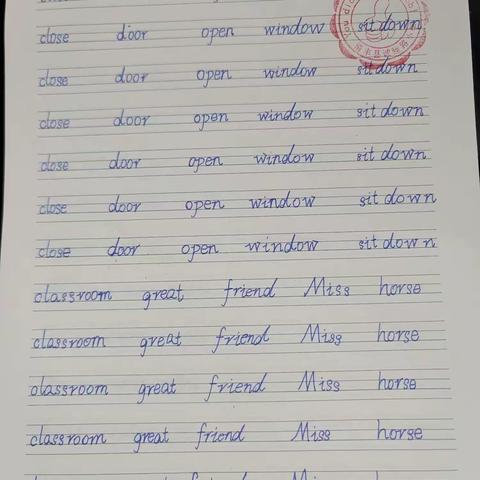 close door open window sit down
close door open window sit down
close door open window sit down
close door open window sit down
close door open window sit down
close door open window sit down
classroom great friend Miss horse
classroom great friend Miss horse
classroom great friend Miss horse
classroom great friend Miss horse